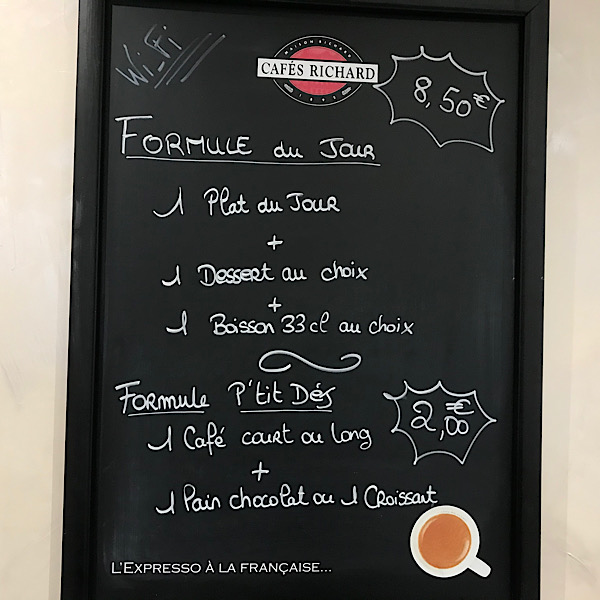 Wi-Fi
MAISON RICHARD
CAFÉS RICHARD
1892
8,50€
FORMULE du JOUR
1 Plat du JOUR
+
1 Dessert au choix
+
1 Boisson 33 cl au choix
Formule P'tit Déj
2,00€
1 Café court ou long
+
1 Pain chocolat ou 1 Croissant
L'EXPRESSO À LA FRANÇAISE...